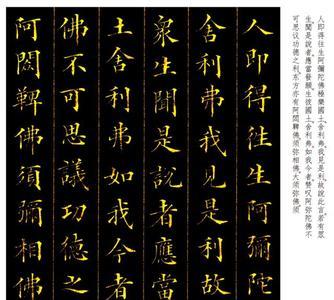 人即得往生阿彌陀佛極樂國土。舍利弗。我見是利。故說此言。若有眾
生。聞是說者。應當發願。生彼國土。舍利弗。如我今者。赞叹阿弥陀佛。不
可思议功德之利。东方亦有阿閦鞞佛。须弥相佛。大须弥佛。须
人即得往生阿彌陀
舍利弗我見是利故
眾生聞是說者應當
土舍利弗如我今者
佛不可思議功德之
阿閦鞞佛須彌相佛